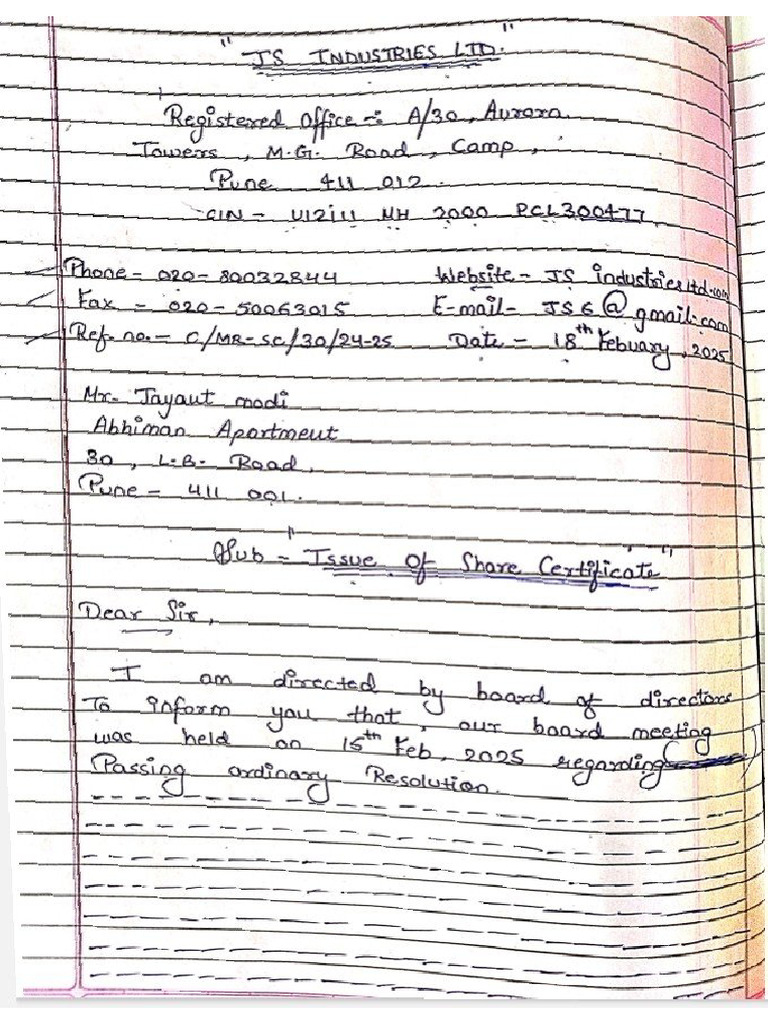 "JS INDUSTRIES LTD."
Registered Office -: A/30, Aurora
Towers, M.G. Road, Camp,
Pune 411 012.
CIN - U12111 MH 2000 PCL300477
Phone - 020-80032844 Website - JS industriesltd.com
Fax - 020-50063015 E-mail - JS6@gmail.com
Ref. no. - C/MR-SC/30/24-25 Date - 18th Febuary, 2025
Mr. Jayaut modi
Abhiman Apartmeut
30, L.B. Road,
Pune - 411 001.
Sub - "Issue Of Share Certificate"
Dear Sir,
I am directed by board of directors
To inform you that, our board meeting
was held on 15th Feb, 2025 regarding
Passing ordinary Resolution.